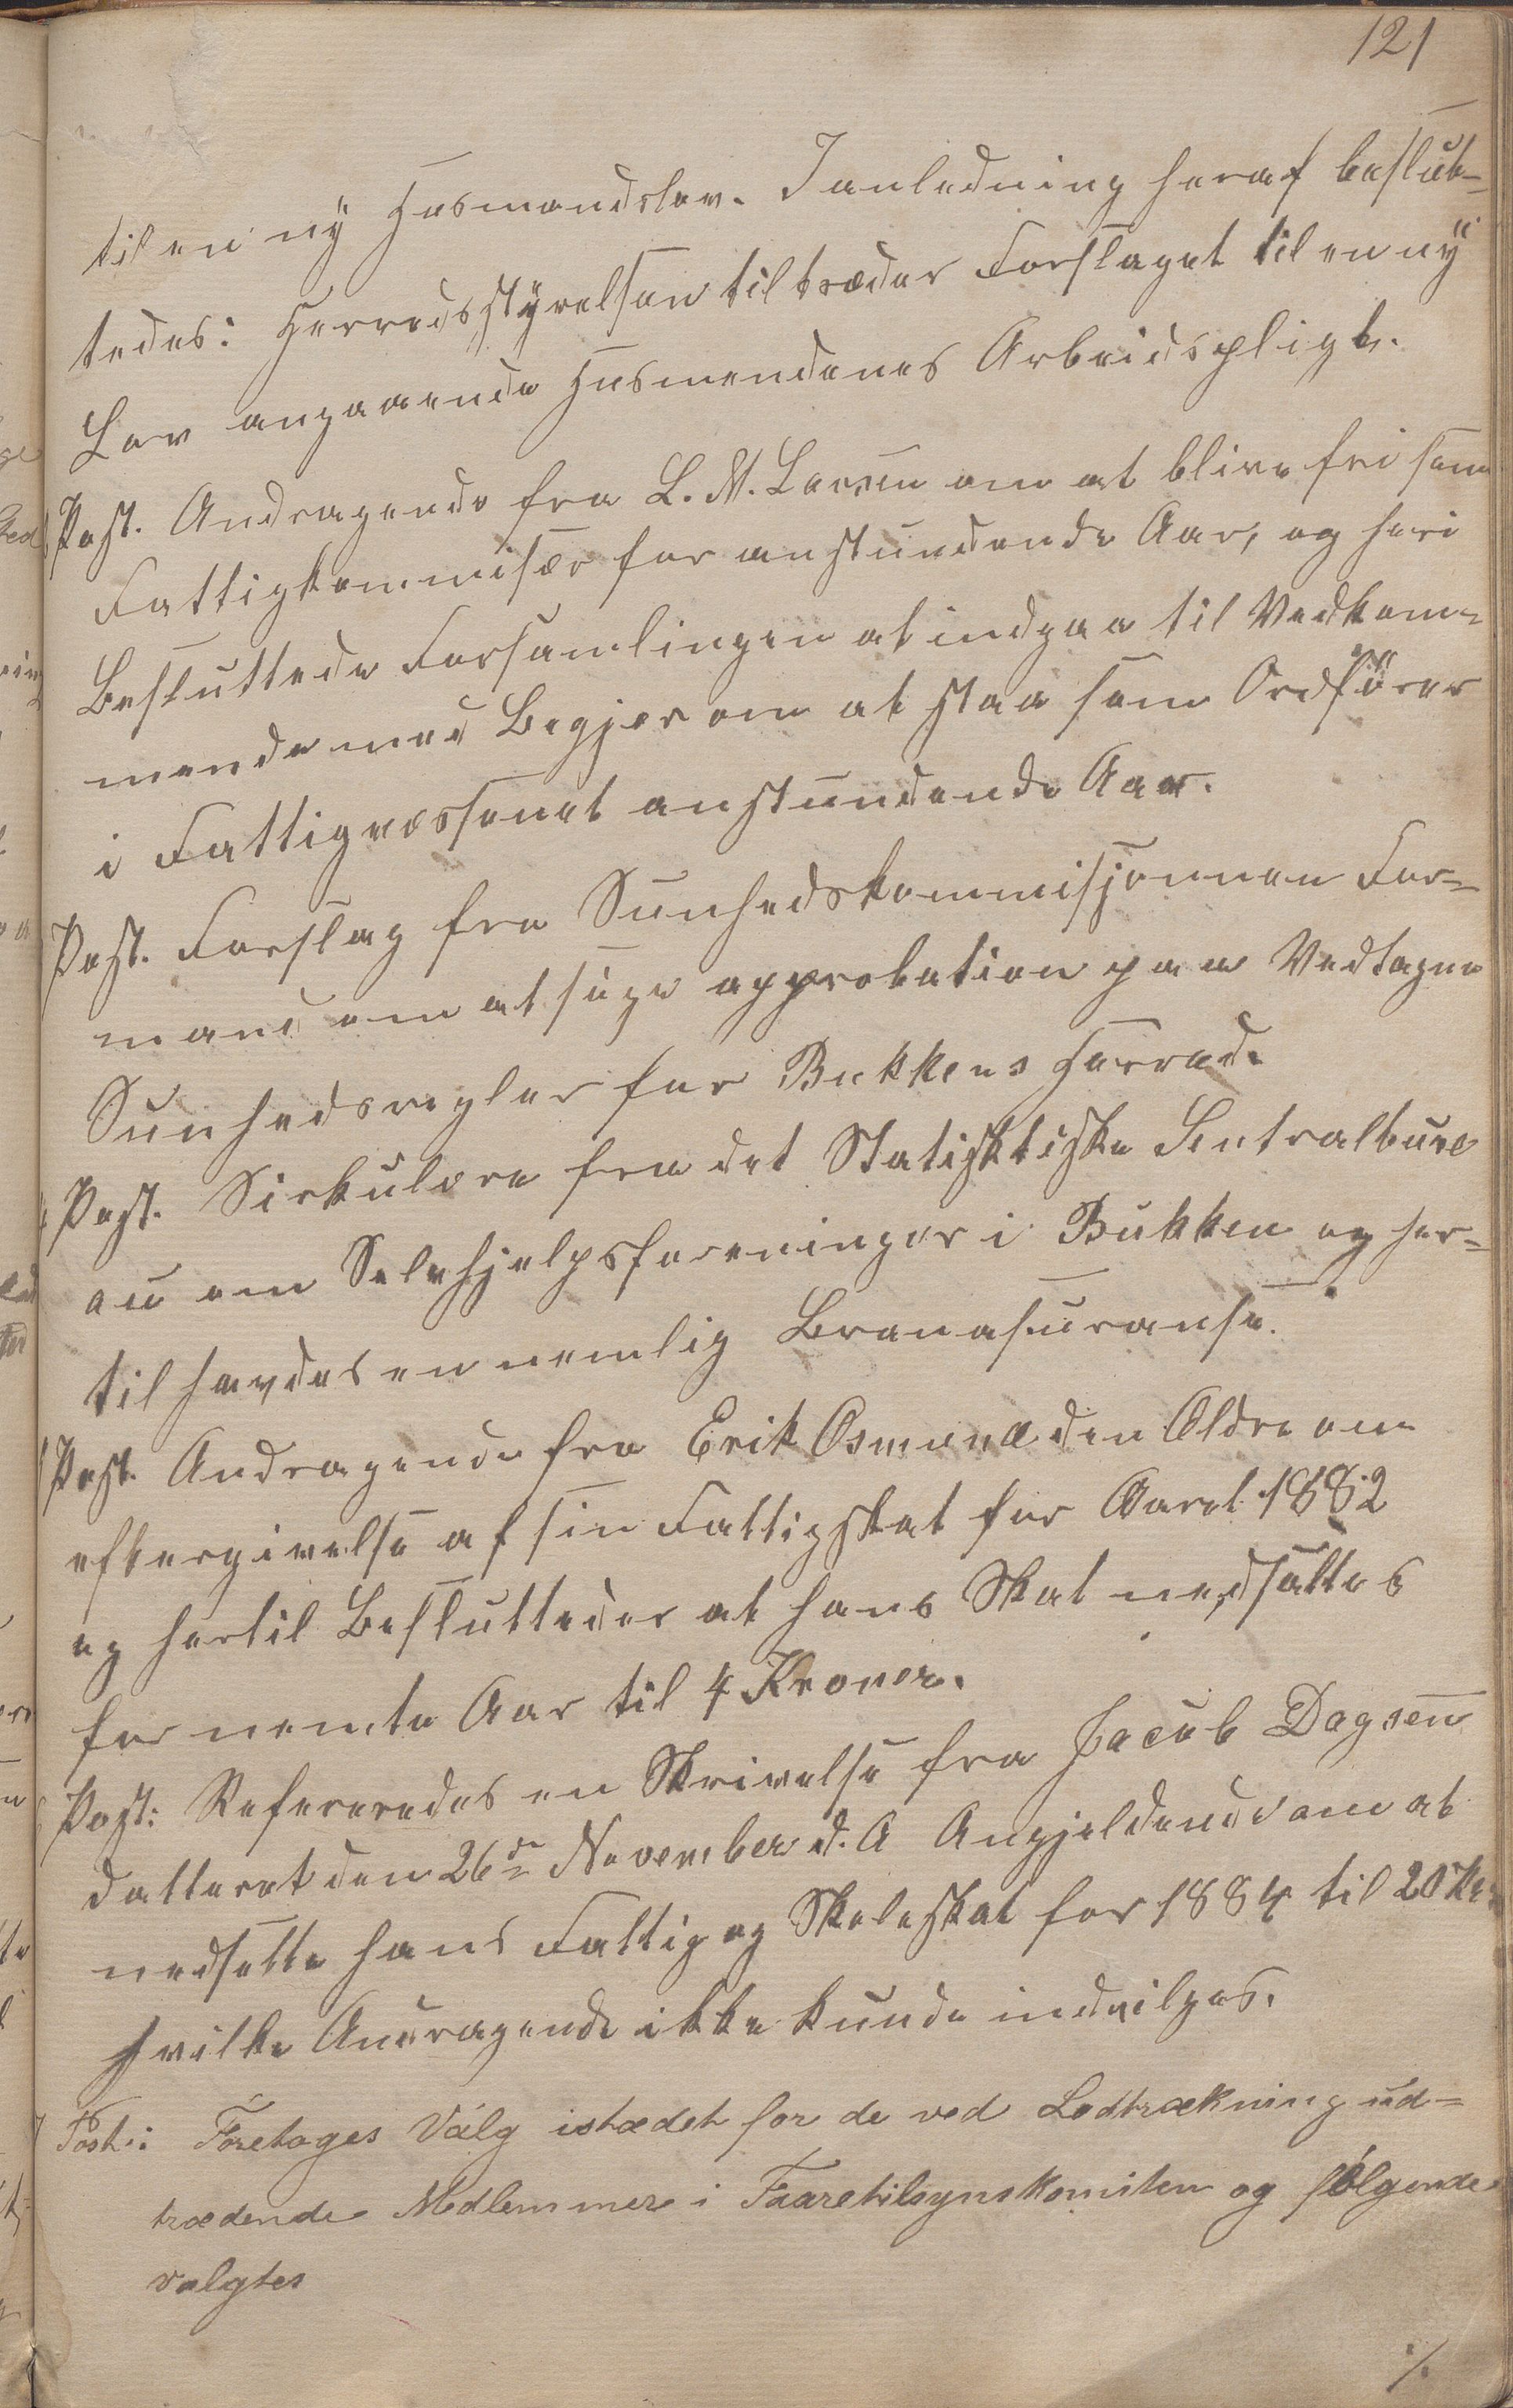 121
til en ny Husmandslov. I anledning heraf beslut-
tedes: Herredsstyrelsen tiltræder Forslaget til en ny
Lov angaaende Husmendenes Arbeidspligt.
Post. Andragende fra L. M. Larsen om at blive fri som
Fattigkommisær for anstundende Aar, og heri
Besluttede Forsamlingen at indgaa til Vedkom-
mende med Begjær om at staa som Ordfører
i Fattigvæssenet anstundende Aar.
Post. Forslag fra Sunhedskommisjonnen For-
mand om at søge approbation paa Vedtagne
Sunhedsregler for Bukkens Herred.
Post. Sirkulære fra det Statisktiske Sentralbure
au om Selvhjelpsforeninger i Bukken og her-
til havdes en nemlig Branasuranse.
Post. Andragende fra Erik Osmund den Ældre om
eftergivelse af sin Fattigskat for Aaret 1882
og hertil Besluttedes at hans Skat nedsattes
for nemte Aar til 4 Kroner.
Post: Refereredes en Skrivelse fra Jacob Dagsen
datteret den 26de November d. A Angjeldende om at
nedsette hans Fattig og Skoleskat for 1884 til 20 Kr.
hvilke Andragende ikke kunde indvilges.
Post: Foretoges Valg istædet for de ved Lodtrækning ud-
trædende Medlemmer i Faaretilsynskomiteen og følgende
valgtes
./.